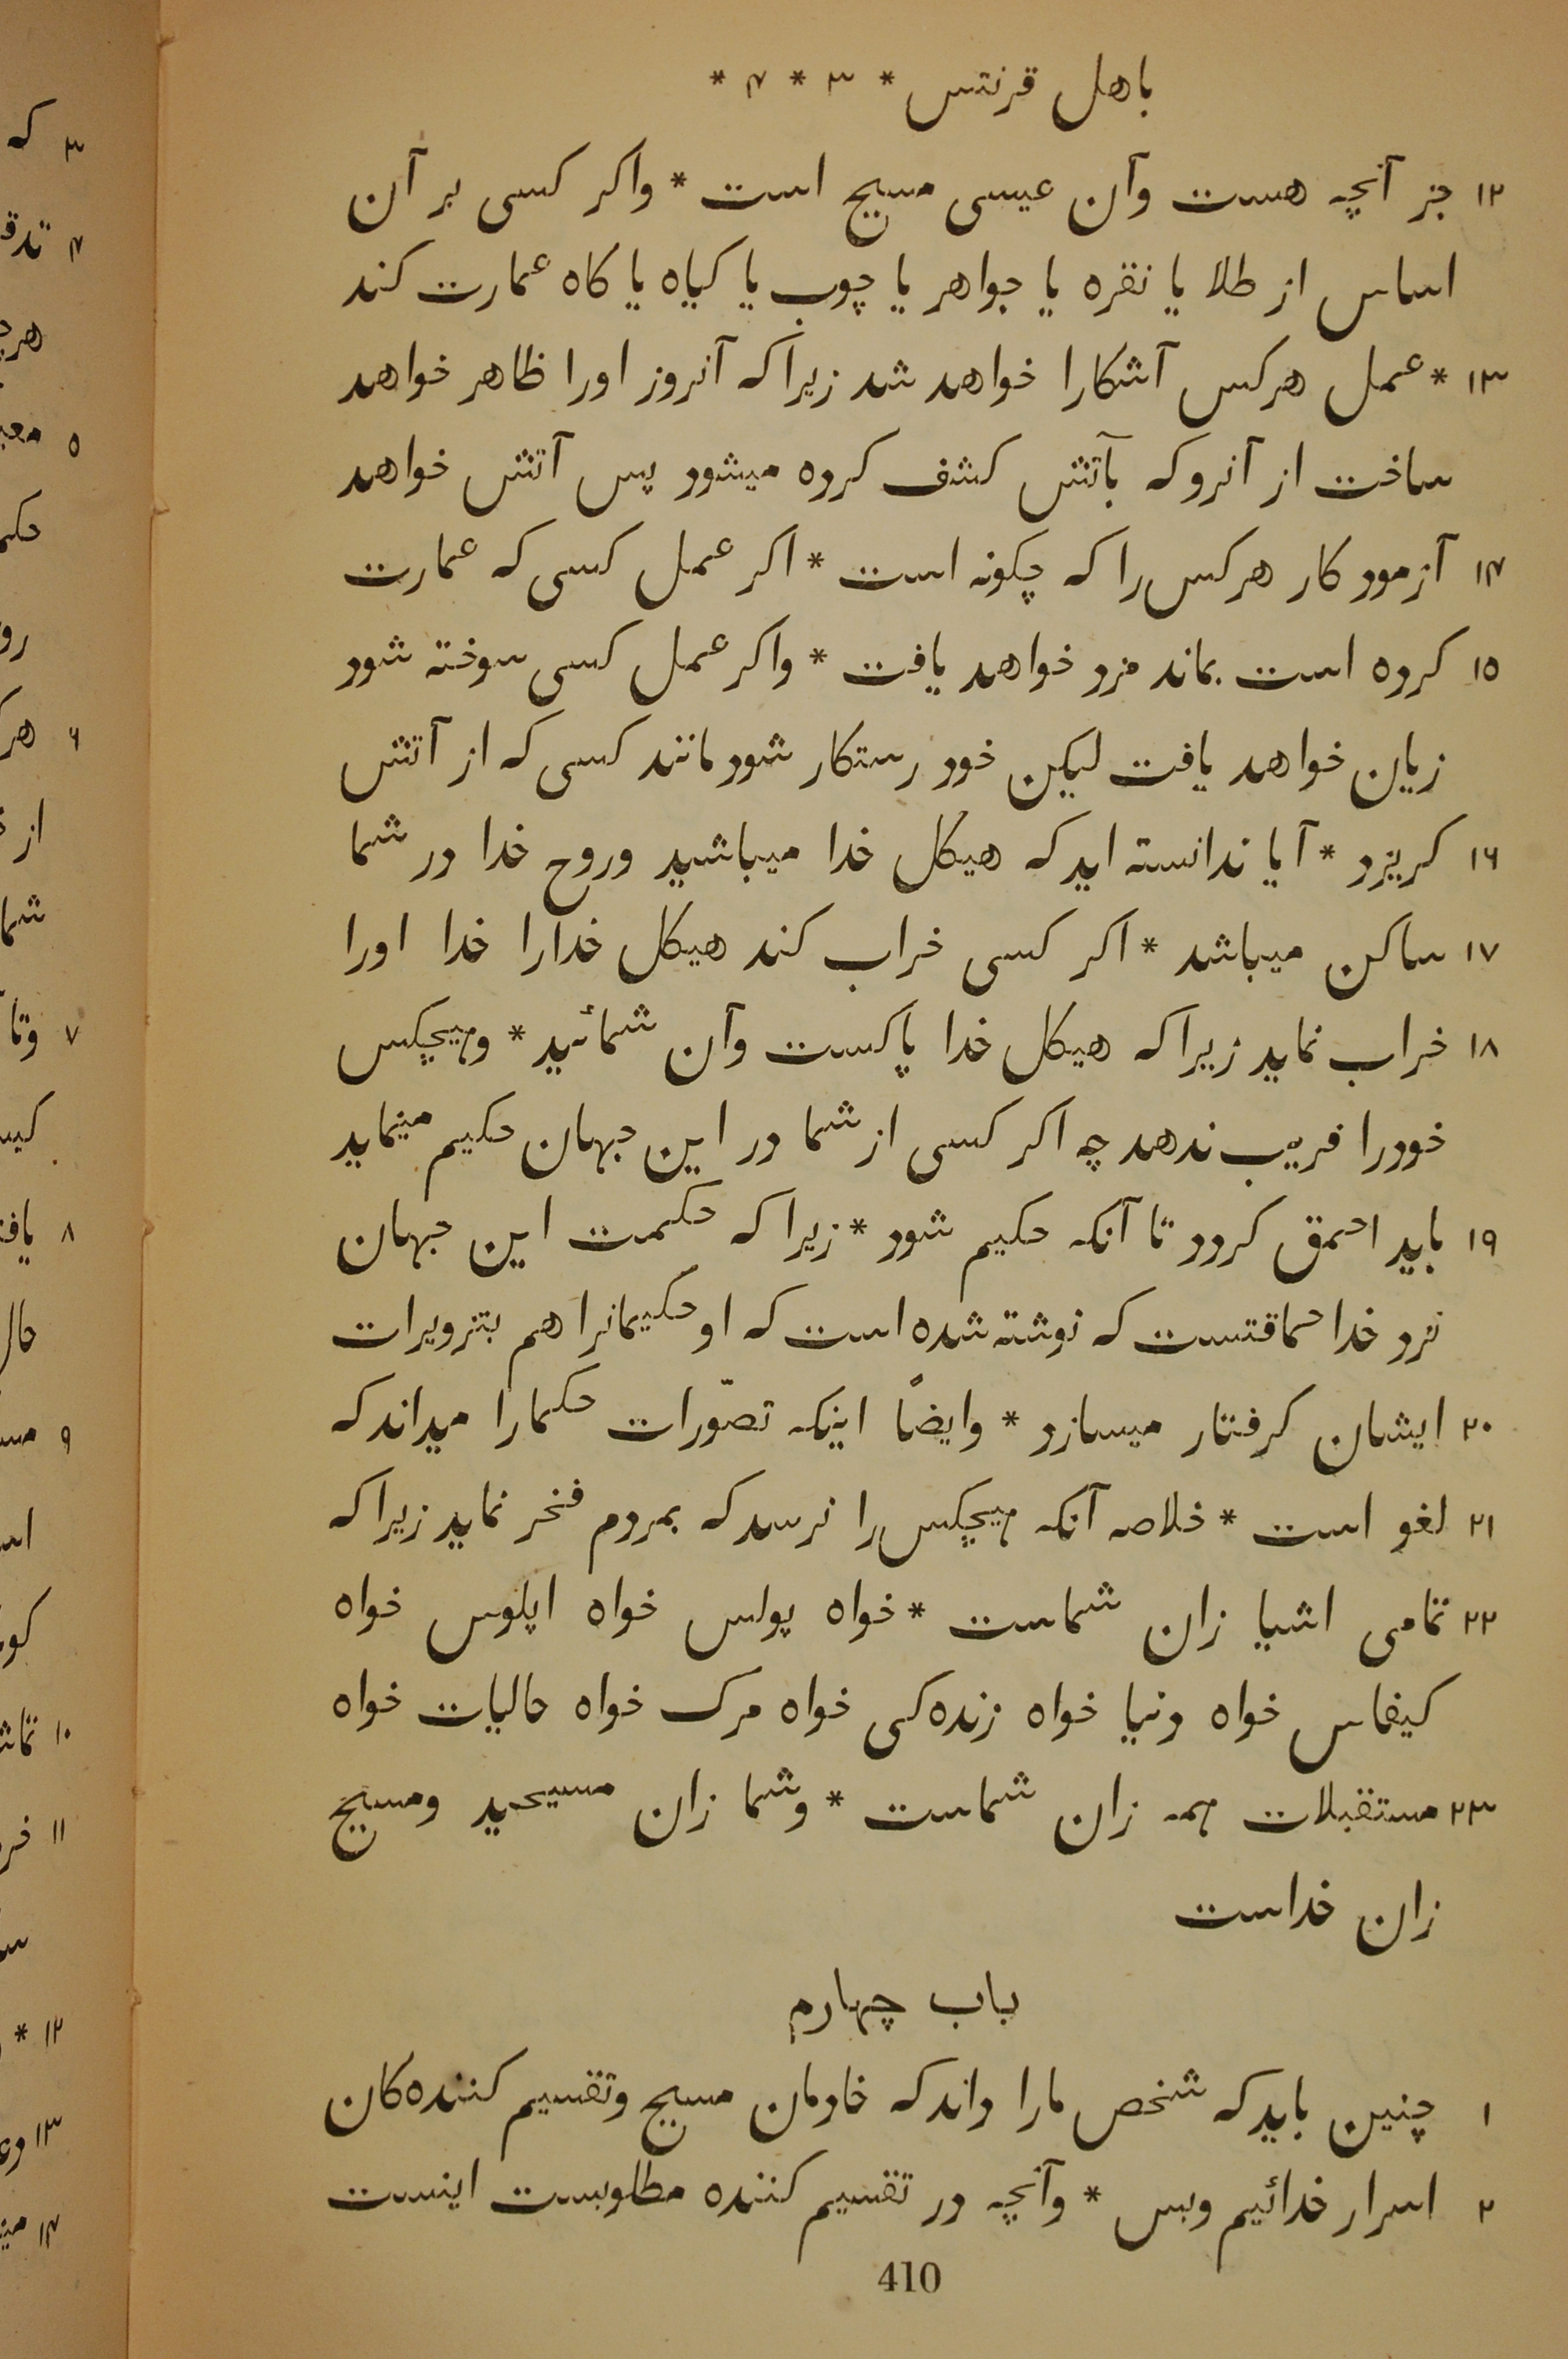 باهل قرنتس * ۳ * ۴ *
۱۲ جز آنچه هست وآن عیسی مسیح است * واکر کسی بر آن
اساس از طلا یا نقره یا جواهر یا چوب یا کیاه یا کاه عمارت کند
۱۳ * عمل هرکس آشکارا خواهد شد زیرا که آنروز اورا ظاهر خواهد
ساخت از آنرو که بآتش کشف کرده میشود پس آتش خواهد
۱۴ آزمود کار هرکس را که چکونه است * اکر عمل کسی که عمارت
۱۵ کرده است بماند مزد خواهد یافت * واکر عمل کسی سوخته شود
زیان خواهد یافت لیکن خود رستکار شود مانند کسی که از آتش
۱۶ کریزد * آیا ندانسته اید که هیکل خدا میباشید وروح خدا در شما
۱۷ ساکن میباشد * اکر کسی خراب کند هیکل خدارا خدا اورا
۱۸ خراب نماید زیرا که هیکل خدا پاکست وآن شمائید * وهیچکس
خودرا فریب ندهد چه اکر کسی از شما در این جهان حکیم مینماید
۱۹ باید احمق کردد تا آنکه حکیم شود * زیرا که حکمت این جهان
نزد خدا حماقتست که نوشته شده است که او حکیمانرا هم بتزویرات
۲۰ ایشان کرفتار میسازد * وایضاً اینکه تصّورات حکمارا میداند که
۲۱ لغو است * خلاصه آنکه هیچکس را نرسد که بمردم فخر نماید زیرا که
۲۲ تمامی اشیا زان شماست * خواه پولس خواه اپلوس خواه
کیفاس خواه دنیا خواه زنده‌کی خواه مرک خواه حالیات خواه
۲۳ مستقبلات همه زان شماست * وشما زان مسیحید ومسیح
زان خداست
باب چهارم
۱ چنین باید که شخص مارا داند که خادمان مسیح وتقسیم کننده‌کان
۲ اسرار خدائیم وبس * وآنچه در تقسیم کننده مطلوبست اینست
410